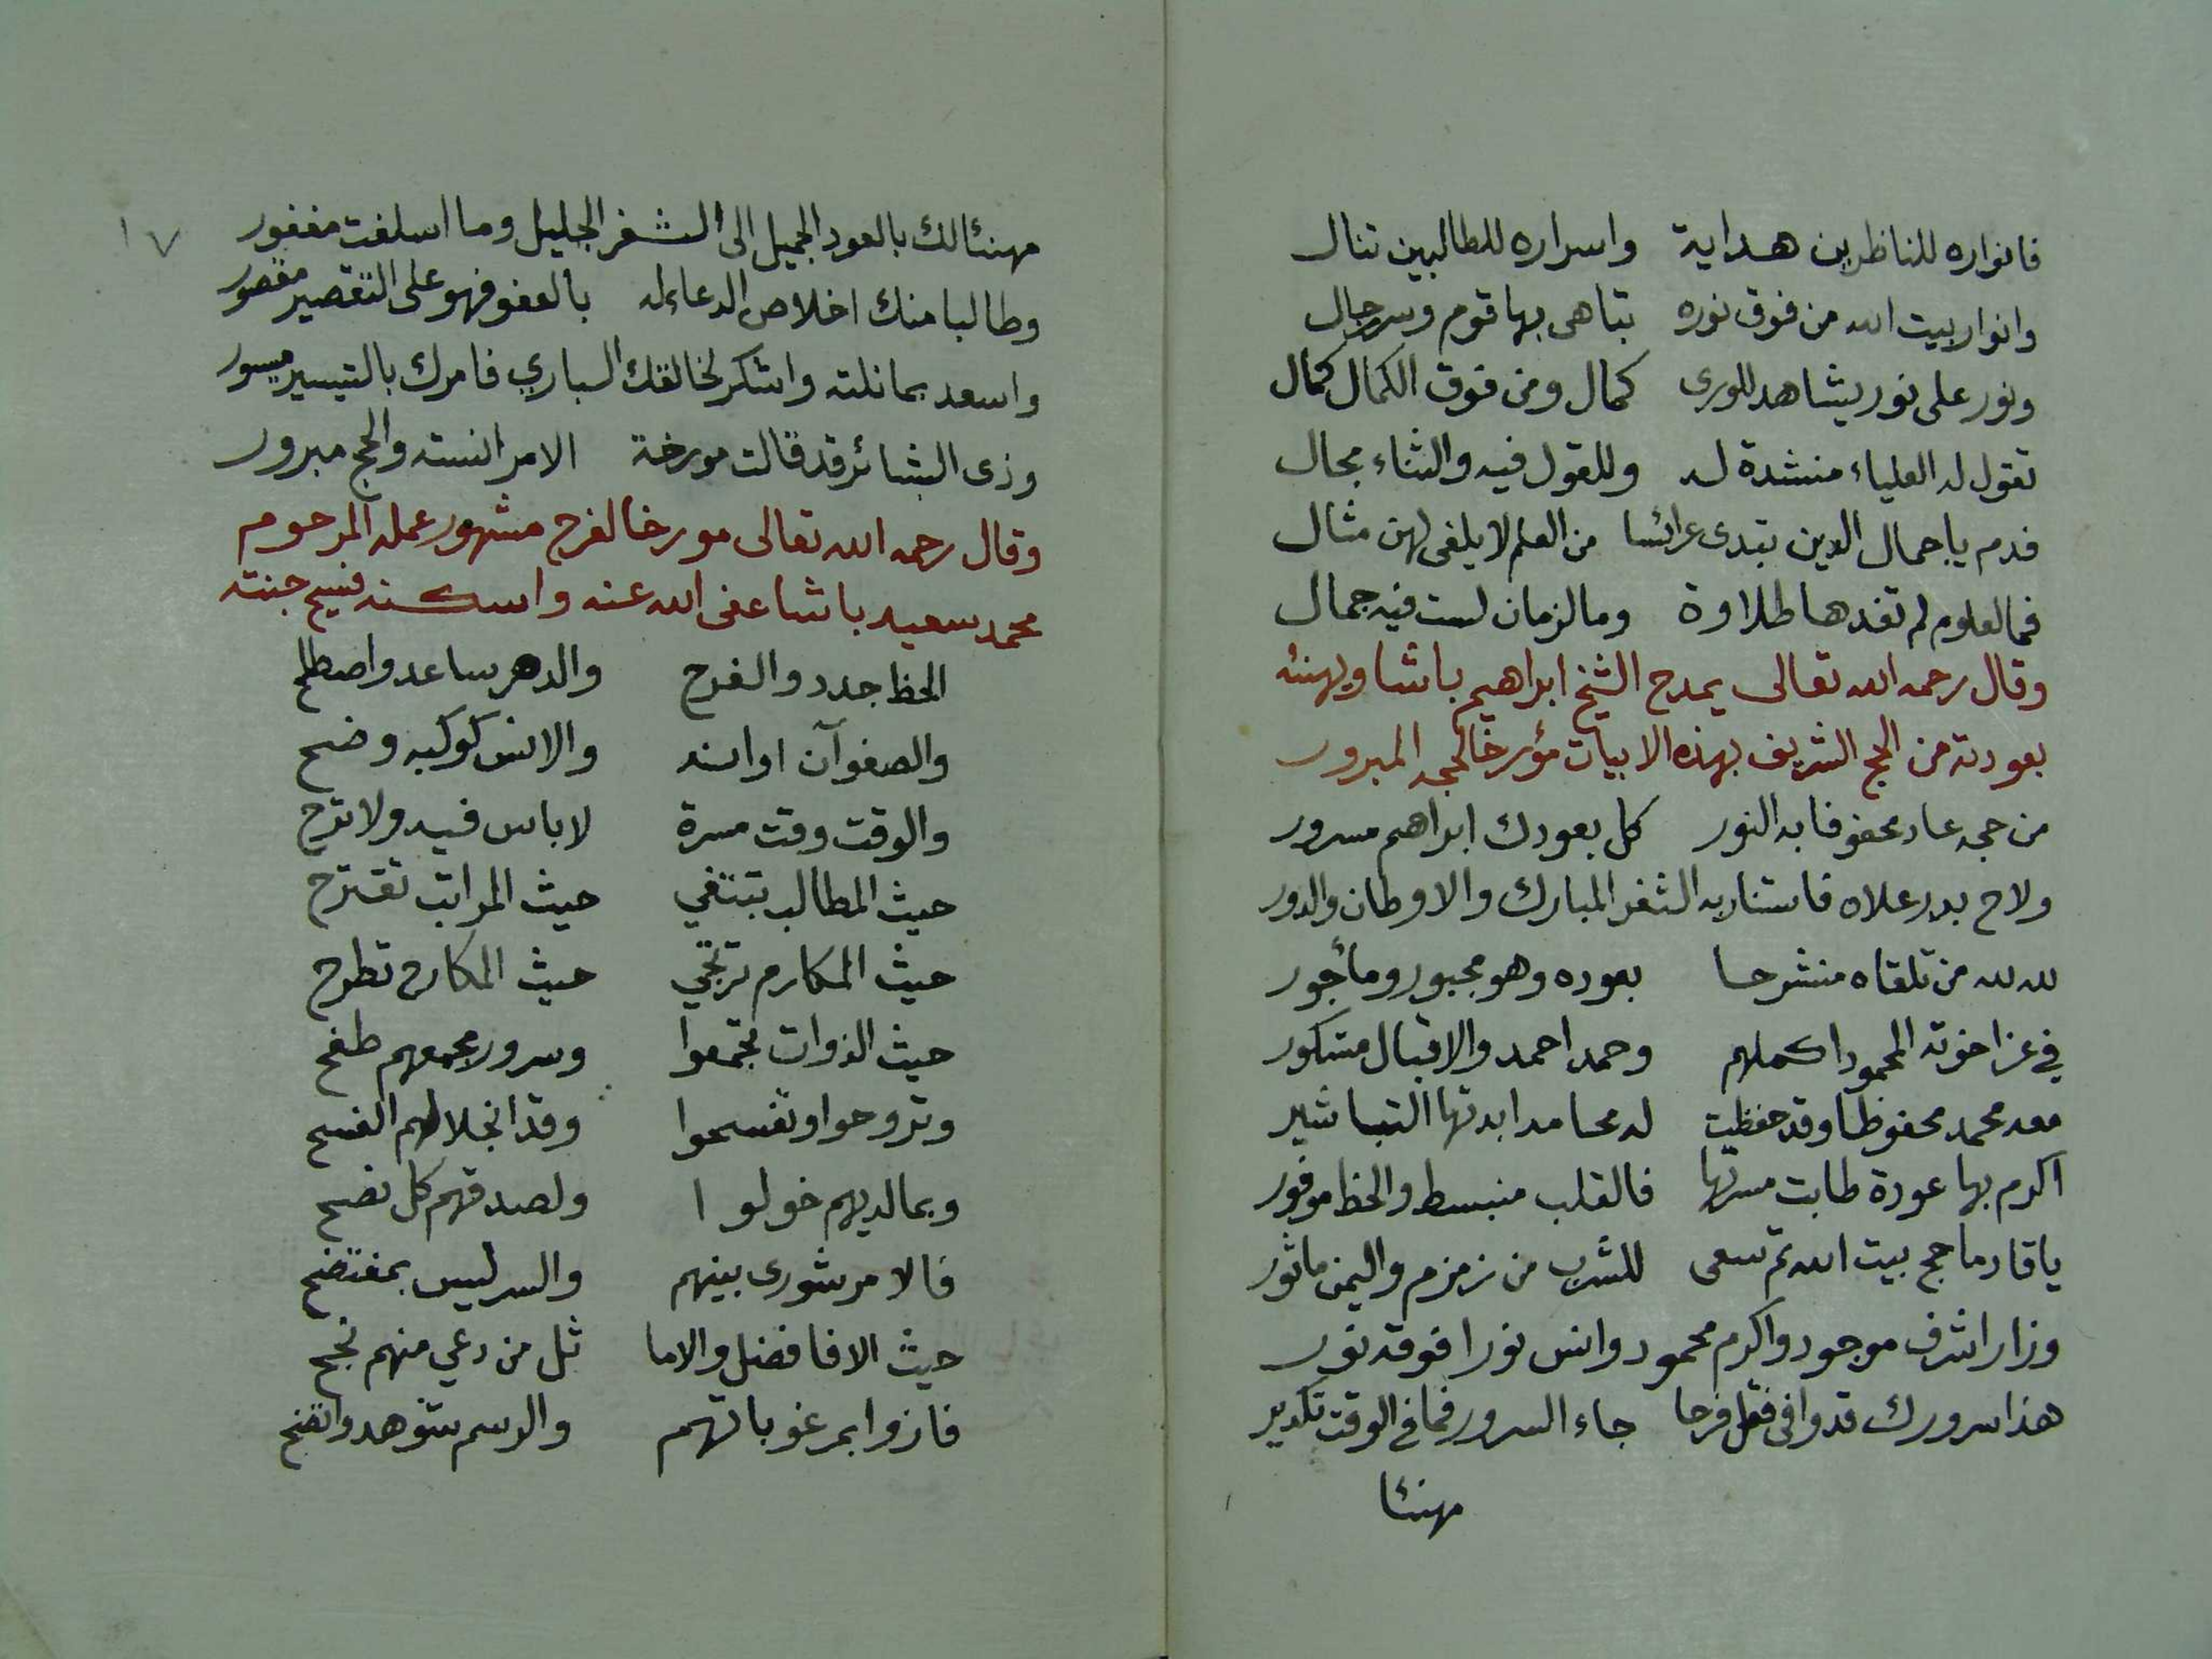 فانواره للناظرين هداية واسراره للطالبين تنال
وانوار بيت الله من فوق نوره تباهى بها قوم وسر رجال
ونور على نور يشاهد للورى كمال ومن فوق الكمال كمال
تقول له العلياء منشدة له وللقول فيه والثناء مجال
فدم يا جمال الدين تبدى عرائسا من العلم لا يلفى لهن مثال
فما لعلوم لم تفدها طلاوة وما لزمان لست فيه جمال
وقال رحمه الله تعالى يمدح الشيخ ابراهيم باشا ويهنئه
بعودته من الحج الشريف بهذه الابيات مؤرخا لحجه المبرور
من حجه عاد محفوفا به النور كل بعودك ابراهم مسرور
ولاح بدر علاه فاستنار به الثغر المبارك والاوطان والدور
لله لله من تلقاه منشرحا بعوده وهو مجبور ومأجور
في عز اخوته المحمود اكملهم وحمد احمد والاقبال مشكور
معه محمد محفوظا وقد حفظت له محامد ابدتها التباشير
اكرم بها عودة طابت مسرتها فالقلب منبسط والحظ موفور
يا قادما حج بيت الله ثم سعى للشرب من زمزم واليمن ماثور
وزار اشرف موجود واكرم محمود وانس نورا فوقه نور
هذا سرورك قد وافى فقل فرحا جاء السرور فما في الوقت تكدير
مهنئا
١٧
مهنئا لك بالعود الجميل الى الثغر الجليل وما اسلفت مغفور
وطالبا منك اخلاص الدعاء له بالعفو فهو على التقصير مقصور
واسعد بما نلته واشكر لخالقك الباري فامرك بالتيسير ميسور
وذى البشائر قد قالت مورخة الامر انسته والحج مبرور
وقال رحمه الله تعالى مورخا لفرح مشهور عمله المرحوم
محمد سعيد باشا عفى الله عنه واسكنه فسيح جنته
الحظ جدد والفرح والدهر ساعد واصطلح
والصفو آن اوانه والانس كوكبه وضح
والوقت وقت مسرة لا باس فيه ولا ترح
حيث المطالب تبتغي حيث المراتب تقترح
حيث المكارم ترتجي حيث المكاره تطرح
حيث الذوات تجمعوا وسرور مجمعهم طفح
وتروحوا وتفسحوا وقد انجلا لهم الفسح
وبما لديهم خولوا ولصدقهم كل نصح
فالامر شورى بينهم والسر ليس بمفتضح
حيث الافاضل والاما ثل من دعي منهم نجح
فازوا بمرغوباتهم والرسم شوهد واتضح